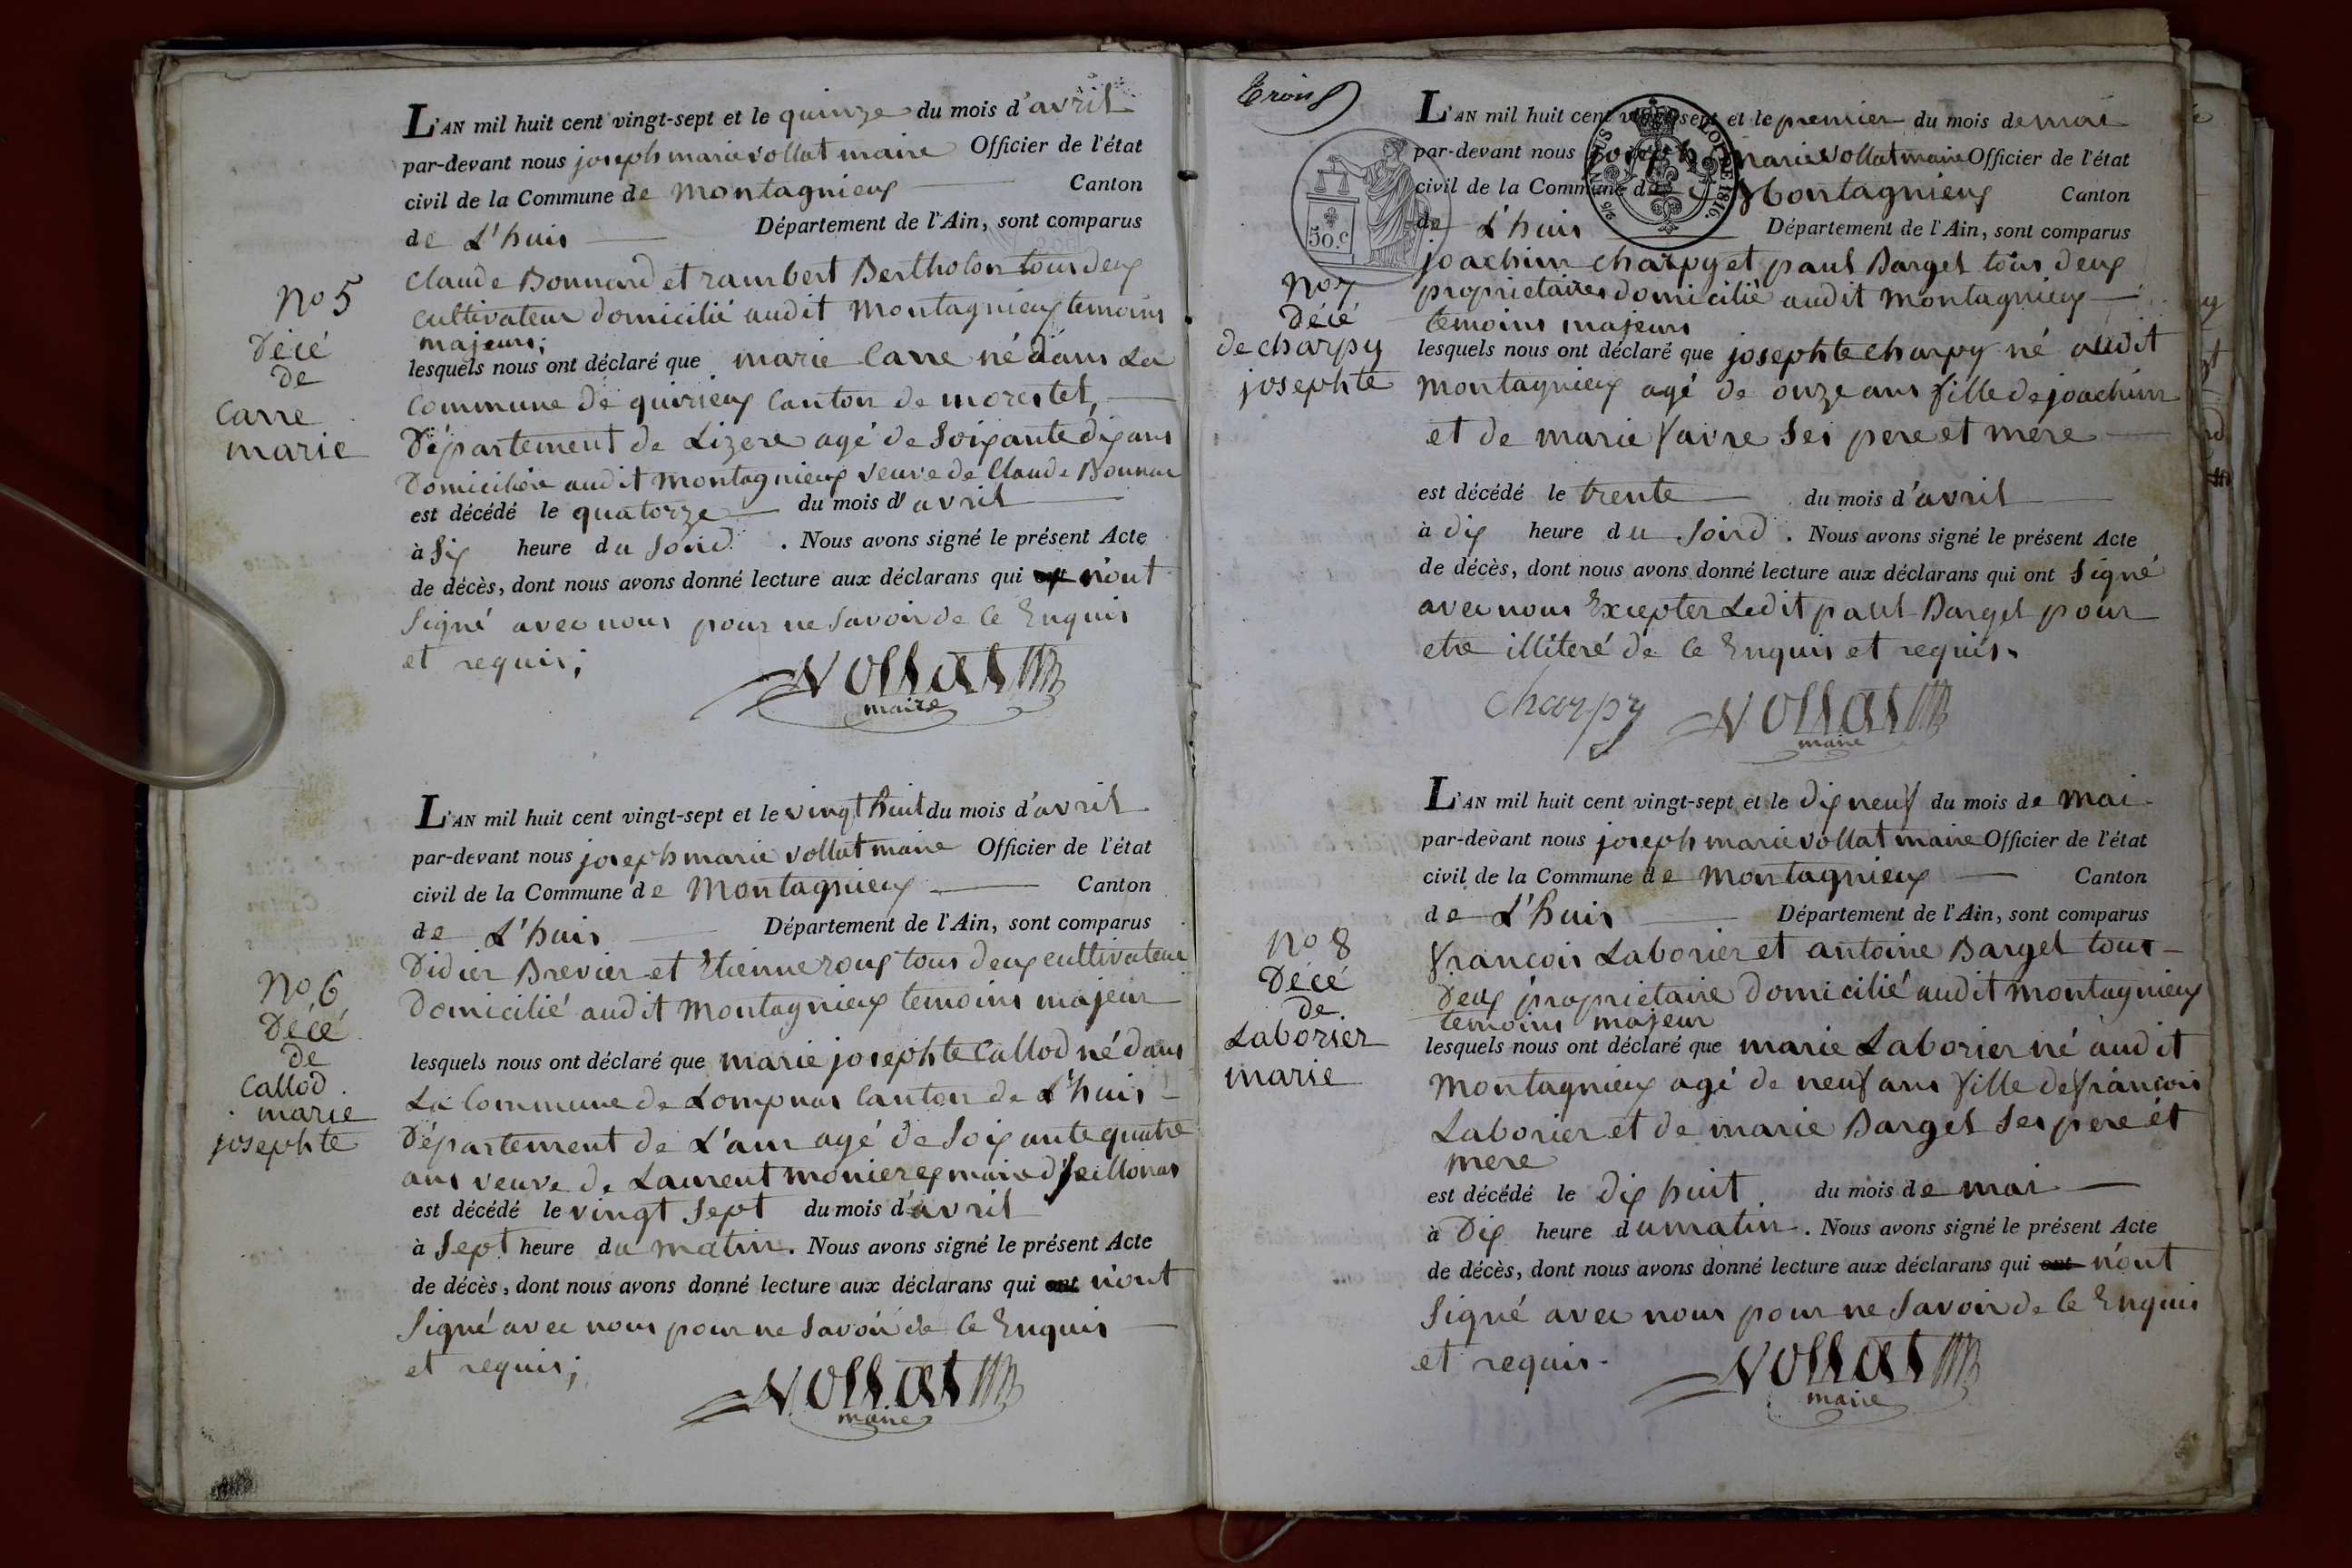 L'AN mil huit cent vingt-sept et le quinze du mois d'avril
par-devant nous joseph marie vollat maire Officier de l'état
civil de la Commune de Montagnieux Canton
de L'huis Département de l'Ain, sont comparus
Claude Bonnard et rambert Bertholon tous deux
cultivateur domicilié audit Montagnieux temoins
majeurs;
No 5
Décé
de
Carre
marie
lesquels nous ont déclaré que marie Carre né dans La
Commune de quirieux Canton de morestel,
Département de Lizere agé de Soixante dix ans
Domicilière audit Montagnieux veuve de Claude Bonnar
est décédé le quatorze du mois d'avril
à Six heure du Soird. Nous avons signé le présent Acte
de décès, dont nous avons donné lecture aux déclarans qui ont n'ont
Signé avec nous pour ne Savoir de Ce Enquis
et requis;
Vollat
maire
L'AN mil huit cent vingt-sept et le vingt huit du mois d'avril
par-devant nous joseph marie vollat maire Officier de l'état
civil de la Commune de Montagnieux Canton
de L'huis Département de l'Ain, sont comparus
Didier Brevier et Etienne roux tous deux cultivateur
Domicilié audit Montagnieux temoins majeur
No 6
Décé
de
Callod
marie
josephte
lesquels nous ont déclaré que marie josephte Callod né dans
La Commune de Lompnas Canton de L'huis
Département de L'ain agé de Soixante quatre
ans veuve de Laurent monier ex maire d'Seillonas
est décédé le vingt Sept du mois d'avril
à Sept heure du matin. Nous avons signé le présent Acte
de décès, dont nous avons donné lecture aux déclarans qui ont n'ont
Signé avec nous pour ne Savoir de Ce Enquis
et requis;
Vollat
maire
Trois
L'AN mil huit cent vingt-sept et le premier du mois de mai
par-devant nous joseph marie Vollat maire Officier de l'état
civil de la Commune de Montagnieux Canton
de L'huis Département de l'Ain, sont comparus
50.C
LOI DE 1816.
joachim charpy et paul Bargel tous deux
proprietaires domicilié audit Montagnieux
temoins majeurs
No 7
Décé
de charpy
josephte
lesquels nous ont déclaré que josephte charpy né audit
Montagnieux agé de onze ans fille de joachim
et de marie favre Ses pere et mere
est décédé le trente du mois d'avril
à dix heure du Soird. Nous avons signé le présent Acte
de décès, dont nous avons donné lecture aux déclarans qui ont Signé
avec nous Excepter Ledit paul Bargel pour
etre illiteré de Ce Enquis et requis.
Charpy Vollat
maire
L'AN mil huit cent vingt-sept et le dix neuf du mois de mai
par-devant nous joseph marie vollat maire Officier de l'état
civil de la Commune de Montagnieux Canton
de L'huis Département de l'Ain, sont comparus
françois Laborier et antoine Bargel tous
Deux proprietaire Domicilié audit Montagnieux
temoins majeur
No 8
Décé
de
Laborier
marie
lesquels nous ont déclaré que marie Laborier né audit
Montagnieux agé de neuf ans fille de françois
Laborier et de marie Bargel Ses pere et
mere
est décédé le Dix huit du mois de mai
à Dix heure du matin. Nous avons signé le présent Acte
de décès, dont nous avons donné lecture aux déclarans qui ont n'ont
Signé avec nous pour ne Savoir de Ce Enquis
et requis.
Vollat
maire